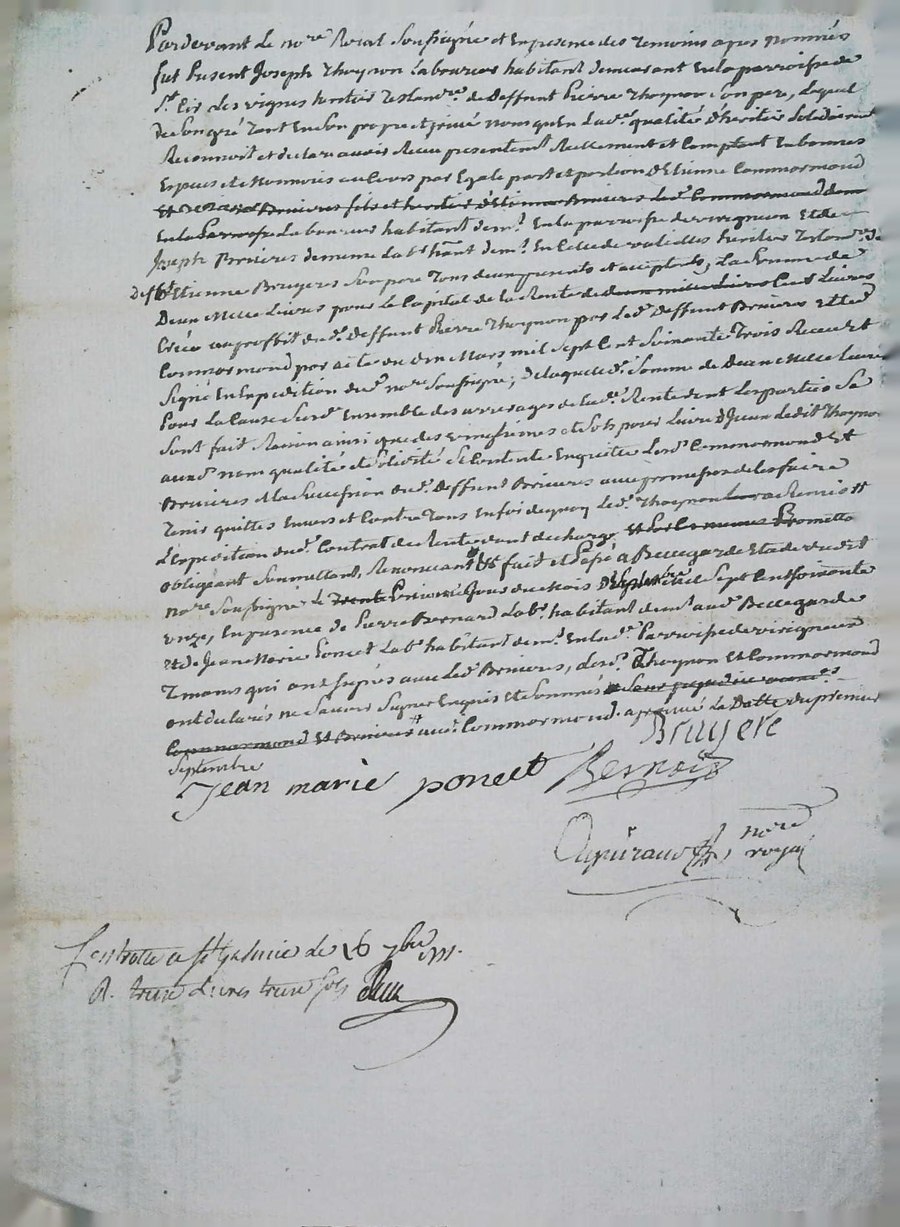 Pardevant Le no.re Roial Soussigné et En presence des Temoins apres nommés
fut Present Joseph Thoynon Laboureur habitant demeurant En la parroisse de
S.t Cir Les vignes heritier Testam.re de Deffunt Pierre Thoynon Son pere, Lequel
de Son gré Tant En Son propre et privé nom qu'En Lad.e qualité d'heritier
Reconnoit et declare avoir Recu presentem.t Reellement et Comptant En bonnes
Especes de Monnoies par Egale part et portion d'Etienne Commarmond
et Bruieres fils et heritier d'Etienne Bruieres Led. Commarmond dem
En la Parroisse Laboureur habitant dem.t En la parroisse de virigneux Et de
Joseph Bruieres de meme Lab.r h'ant dem.t En Celle de heritier Testam.re de
Deff.t Etienne Bruyere Son pere Tous deux presents et acceptants, La Somme de
Deux Mille Livres pour Le Capital de La Rente de deux mille Livres Cent Livres
Créée au proffit dud. Deffunt Pierre Thoynon par Led. Deffunt Bruieres et Led.
Commarmond par acte du Mars mil Sept Cent Soixante Trois Recu Et
Signé En Expedition dud. no.re Soussigné; de Laquelle d. Somme de Deux Mille Livres
Pour La Cause Susd. Ensemble des arrerages de Lad. Rente dont Les parties Se
Sont fait Raison ainsi que des vingtiemes et Sols pour Livre d'Iceux Ledit Thoynon
auxd. nom qualité et Se Contente En quitte Lesd. Commarmond Et
Bruieres et La Succession dud. Deffunt Bruieres avec promesse de Les faire
Tenir quittes Envers et Contre Tous En foi de quoy Led. Thoynon a Remis
L'Expedition dud. Contrat de Rente dechargé Promettu
obligeant Soumettant, Renonceant fait et Passé a Bellegarde Etude dudit
no.re Soussigné Le Trente Premier Jour du Mois Sept Cent Soixante
onze, En presence de Pierre Bernard Lab.r habitant dem.t aud. Bellegarde
et de Jean Marie Poncet Lab.r habitant dem.t En lad. Parroisse de virigneux
Temoins qui ont Signés avec Led. Bruieres, Lesd. Thoynon Et Commarmond
ont declarés ne Savoir Signer Enquis Et Sommés Sans prejudice
Commarmond Et Bruieres aud. Commarmond. approuvé La Datte du premier
Septembre
Bruyere
Jean marie poncet Bernard
no.re royal
Controllé a St Galmier le 16 7bre 1771.
R. treize Livres treize Sols